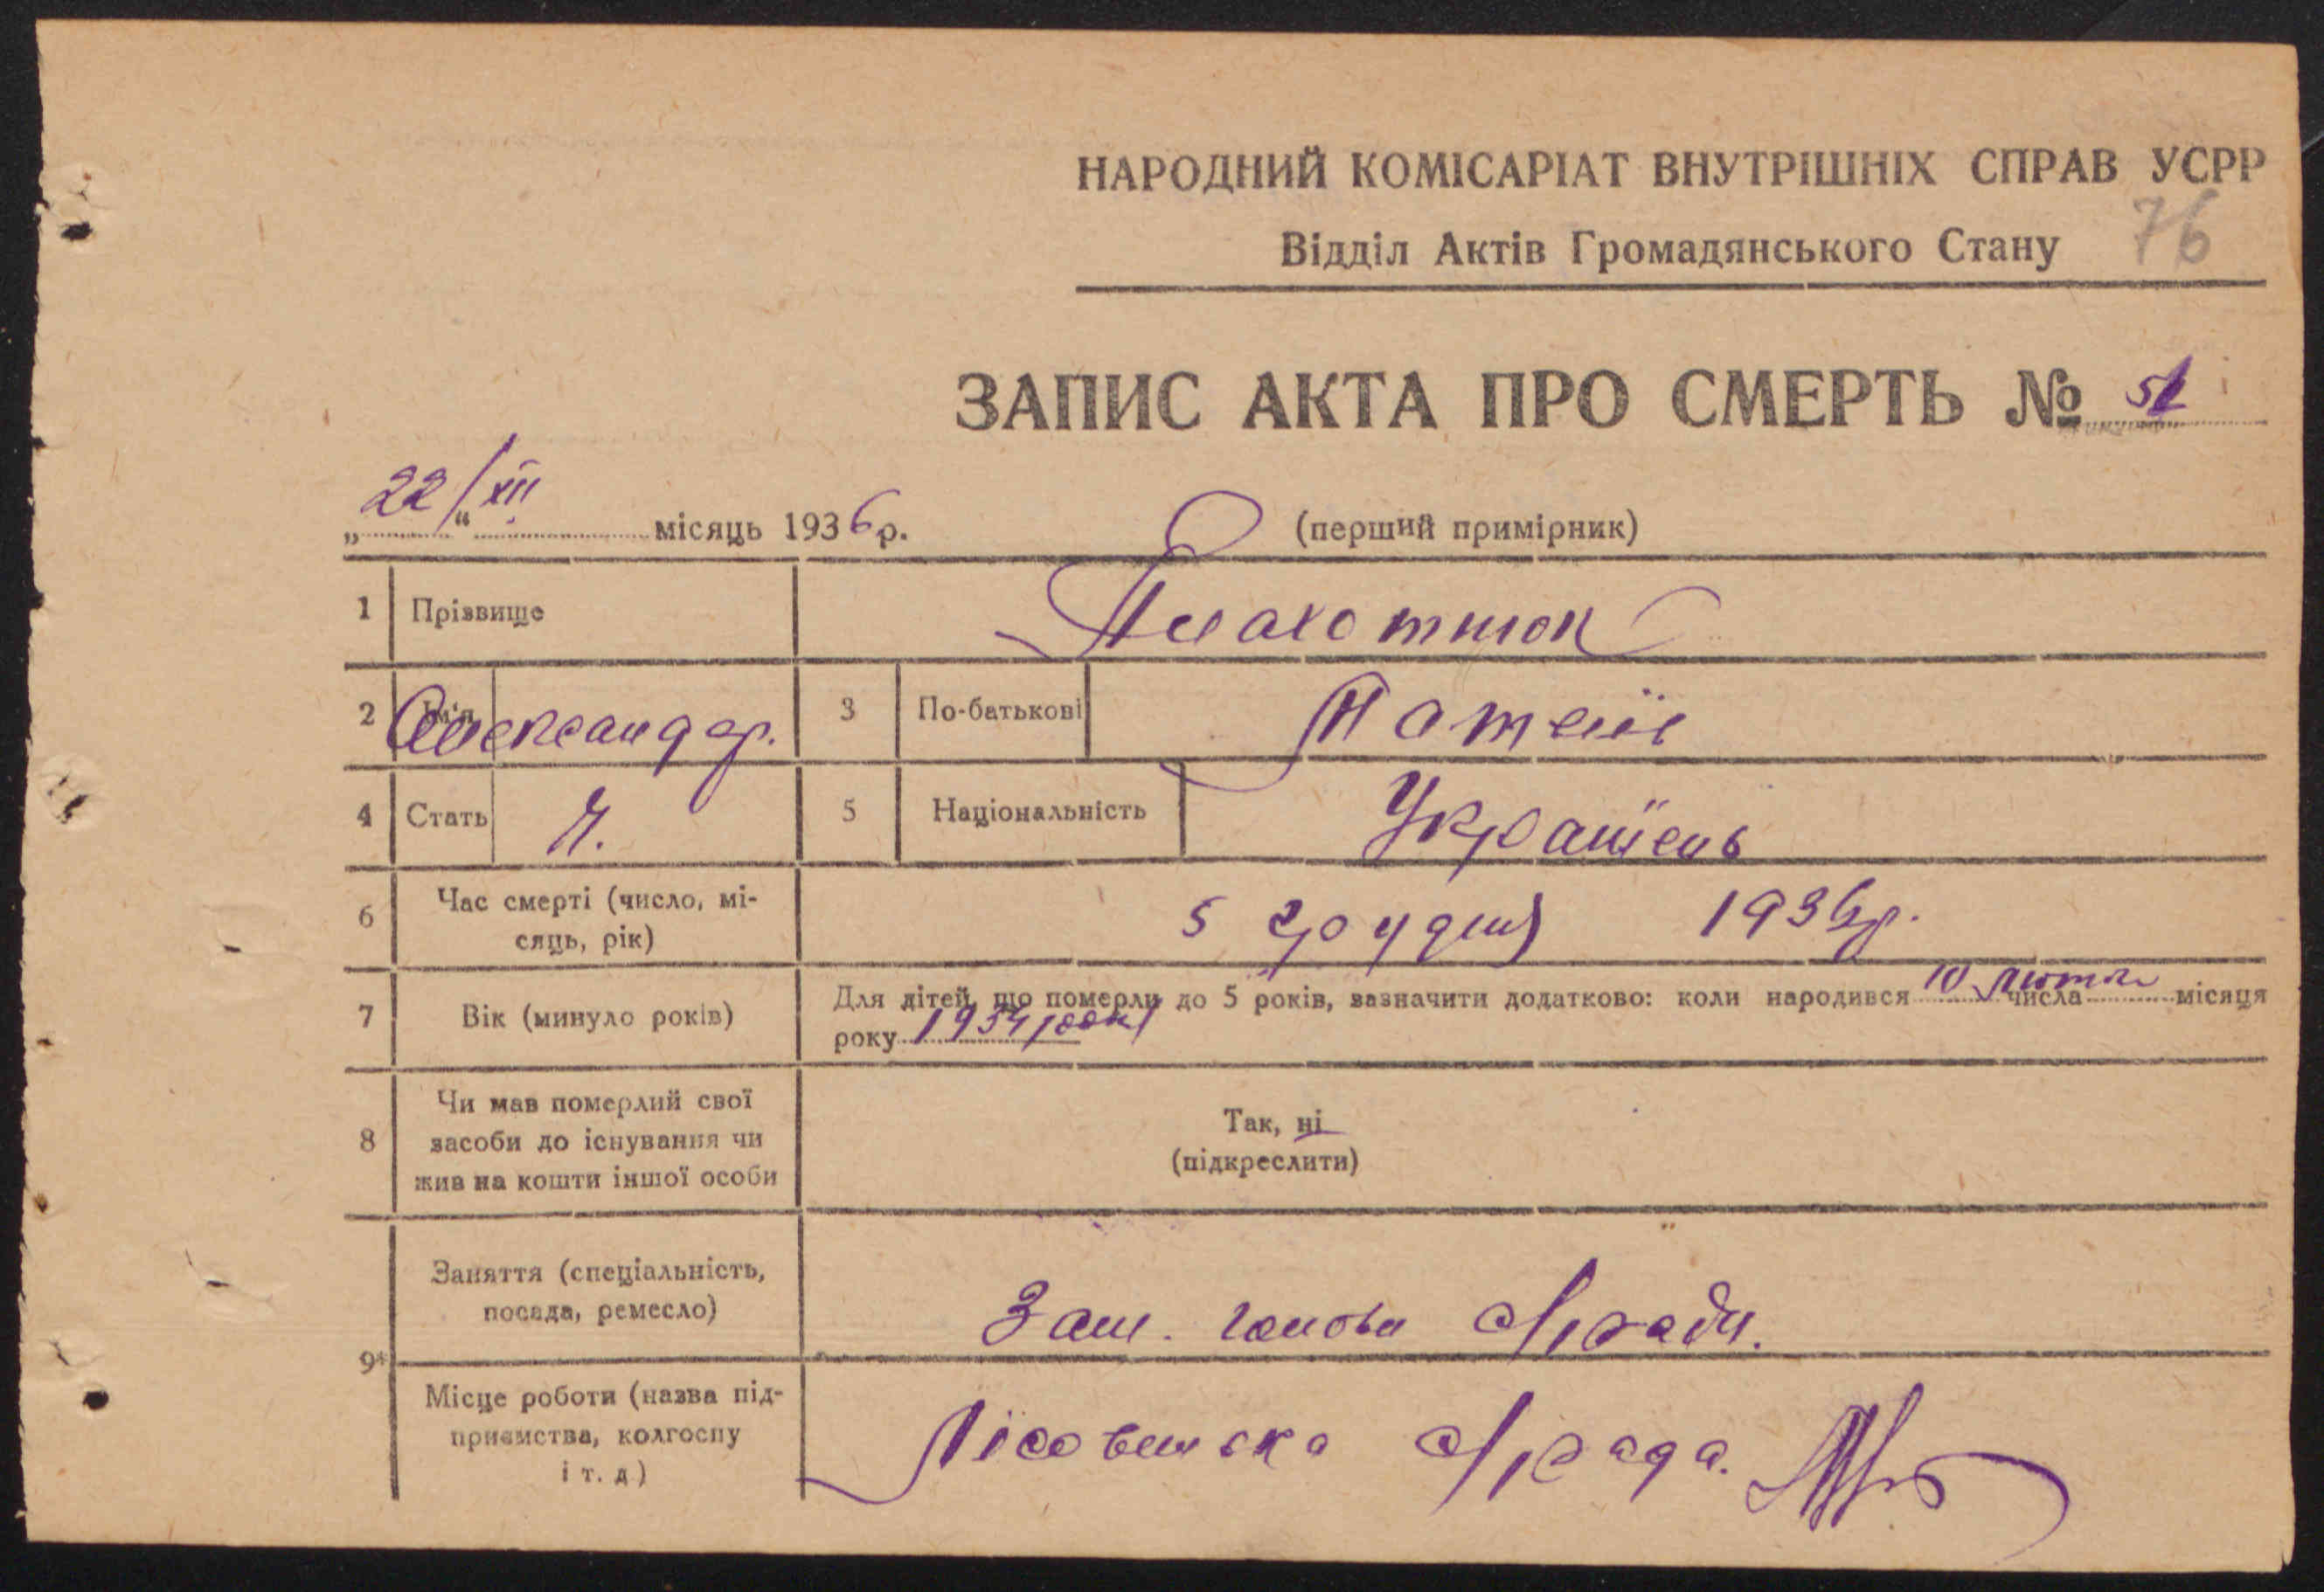 НАРОДНИЙ КОМІСАРІАТ ВНУТРІШНІХ СПРАВ УСРР
Відділ Актів Громадянського Стану 76
ЗАПИС АКТА ПРО СМЕРТЬ № 51
„22/XII“ місяць 1936 р. (перший примірник)
1 Прізвище Плахотнюк
2 Ім'я Олександр. 3 По-батькові
4 Стать Ч. 5 Національність Українець
6 Час смерті (число, мі-
сяць, рік) 5 грудня 1936р.
7 Вік (минуло років) Для дітей, що померли до 5 років, зазначити додатково: коли народився 10 числа лютого місяця
року 1934 року
8 Чи мав померлий свої
засоби до існування чи
жив на кошти іншої особи
Так, ні
(підкреслити)
9*
Заняття (спеціальність,
посада, ремесло) Зам. голови с/ради.
Місце роботи (назва під-
приємства, колгоспу
і т. д) с/рада.